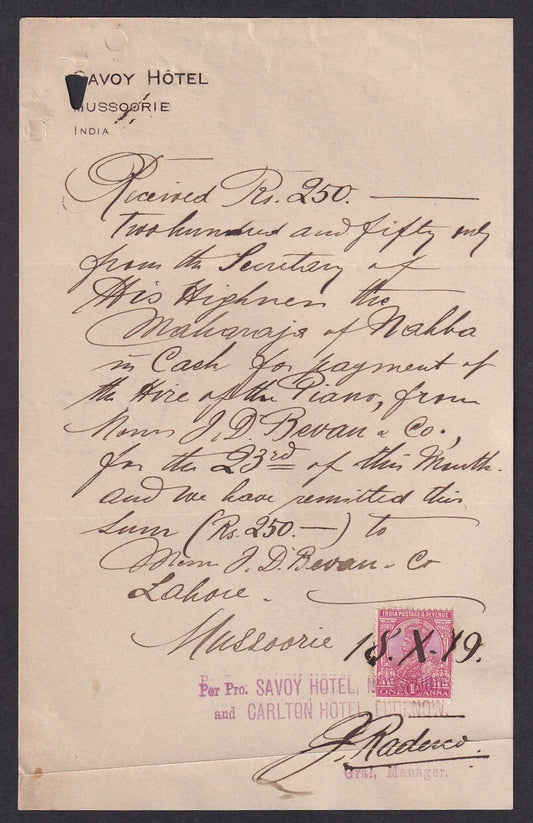 SAVOY HÔTEL
MUSSOORIE
INDIA
Received Rs. 250.
Two hundred and fifty only
from the Secretary of
His Highness the
Maharaja of Nahba
in Cash for payment of
the Hire of the Piano, from
Messrs J. D. Bevan & Co.,
for the 23rd of this Month.
and we have remitted this
sum (Rs. 250.—) to
Messrs J. D. Bevan & Co
Lahore.
INDIA POSTAGE & REVENUE
Mussoorie 18.X.19.
ONE 1A ANNA
Per Pro. SAVOY HOTEL,
and CARLTON HOTEL, LUCKNOW.
Gral, Manager.